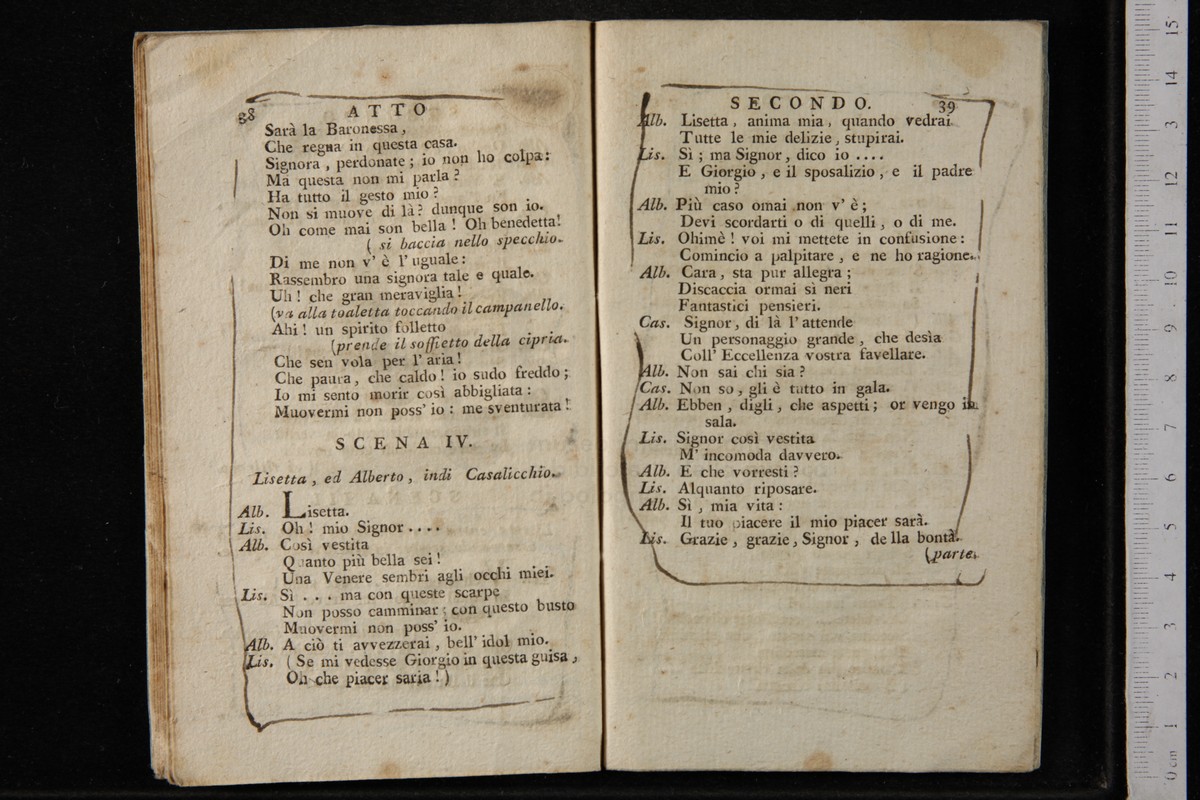 g8 ATTO
Sarà la Baronessa,
Che regna in questa casa.
Signora, perdonate; io non ho colpa:
Ma questa non mi parla?
Ha tutto il gesto mio?
Non si muove di là? dunque son io.
Oh come mai son bella! Oh benedetta!
( si baccia nello specchio.
Di me non v' è l' uguale:
Rassembro una signora tale e quale.
Uh! che gran meraviglia!
(va alla toaletta toccando il campanello.
Ahi! un spirito folletto
(prende il soffietto della cipria.
Che sen vola per l' aria!
Che paura, che caldo! io sudo freddo;
Io mi sento morir così abbigliata:
Muovermi non poss' io: me sventurata!
SCENA IV.
Lisetta, ed Alberto, indi Casalicchio.
Alb. Lisetta.
Lis. Oh! mio Signor....
Alb. Così vestita
Quanto più bella sei!
Una Venere sembri agli occhi miei.
Lis. Sì ... ma con queste scarpe
Non posso camminar; con questo busto
Muovermi non poss' io.
Alb. A ciò ti avvezzerai, bell' idol mio.
Lis. (Se mi vedesse Giorgio in questa guisa,
Oh che piacer saria!)
SECONDO. 39
Alb. Lisetta, anima mia, quando vedrai
Tutte le mie delizie, stupirai.
Lis. Sì; ma Signor, dico io....
E Giorgio, e il sposalizio, e il padre
mio?
Alb. Più caso omai non v' è;
Devi scordarti o di quelli, o di me.
Lis. Ohimè! voi mi mettete in confusione:
Comincio a palpitare, e ne ho ragione.
Alb. Cara, sta pur allegra;
Discaccia ormai sì neri
Fantastici pensieri.
Cas. Signor, di là l' attende
Un personaggio grande, che desìa
Coll' Eccellenza vostra favellare.
Alb. Non sai chi sia?
Cas. Non so, gli è tutto in gala.
Alb. Ebben, digli, che aspetti; or vengo in
sala.
Lis. Signor così vestita
M' incomoda davvero.
Alb. E che vorresti?
Lis. Alquanto riposare.
Alb. Sì, mia vita:
Il tuo piacere il mio piacer sarà.
Lis. Grazie, grazie, Signor, de lla bontà.
(parte.
0 cm 1 2 3 4 5 6 7 8 9 10 11 12 3 14 15